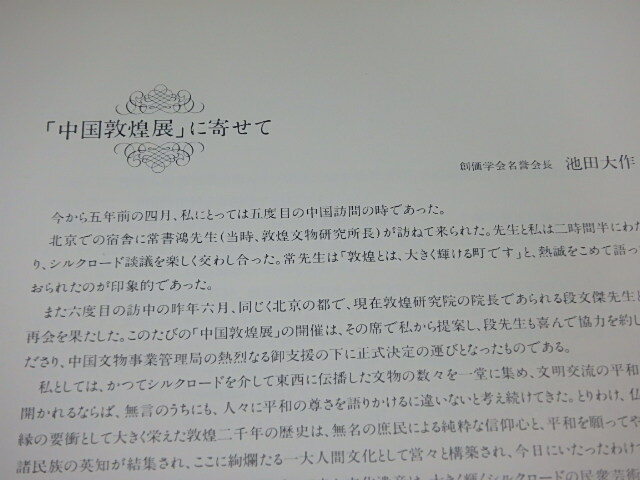 「中国敦煌展」に寄せて
創価学会名誉会長 池田大作
今から五年前の四月、私にとっては五度目の中国訪問の時であった。
北京での宿舎に常書鴻先生(当時、敦煌文物研究所長)が訪ねて来られた。先生と私は二時間半にわた
り、シルクロード談議を楽しく交わし合った。常先生は「敦煌とは、大きく輝ける町です」と、熱誠をこめて語っ
おられたのが印象的であった。
また六度目の訪中の昨年六月、同じく北京の都で、現在敦煌研究院の院長であられる段文傑先生と
再会を果たした。このたびの「中国敦煌展」の開催は、その席で私から提案し、段先生も喜んで協力を約し
ださり、中国文物事業管理局の熱烈なる御支援の下に正式決定の運びとなったものである。
私としては、かつてシルクロードを介して東西に伝播した文物の数々を一堂に集め、文明交流の平和
開かれるならば、無言のうちにも、人々に平和の尊さを語りかけるに違いないと考え続けてきた。とりわけ、仏
縁の要衝として大きく栄えた敦煌二千年の歴史は、無名の庶民による純粋な信仰心と、平和を願ってや
諸民族の英知が結集され、ここに絢爛たる一大人間文化として営々と構築され、今日にいたったわけで
文化遺産は、大きく輝くシルクロードの民衆芸術